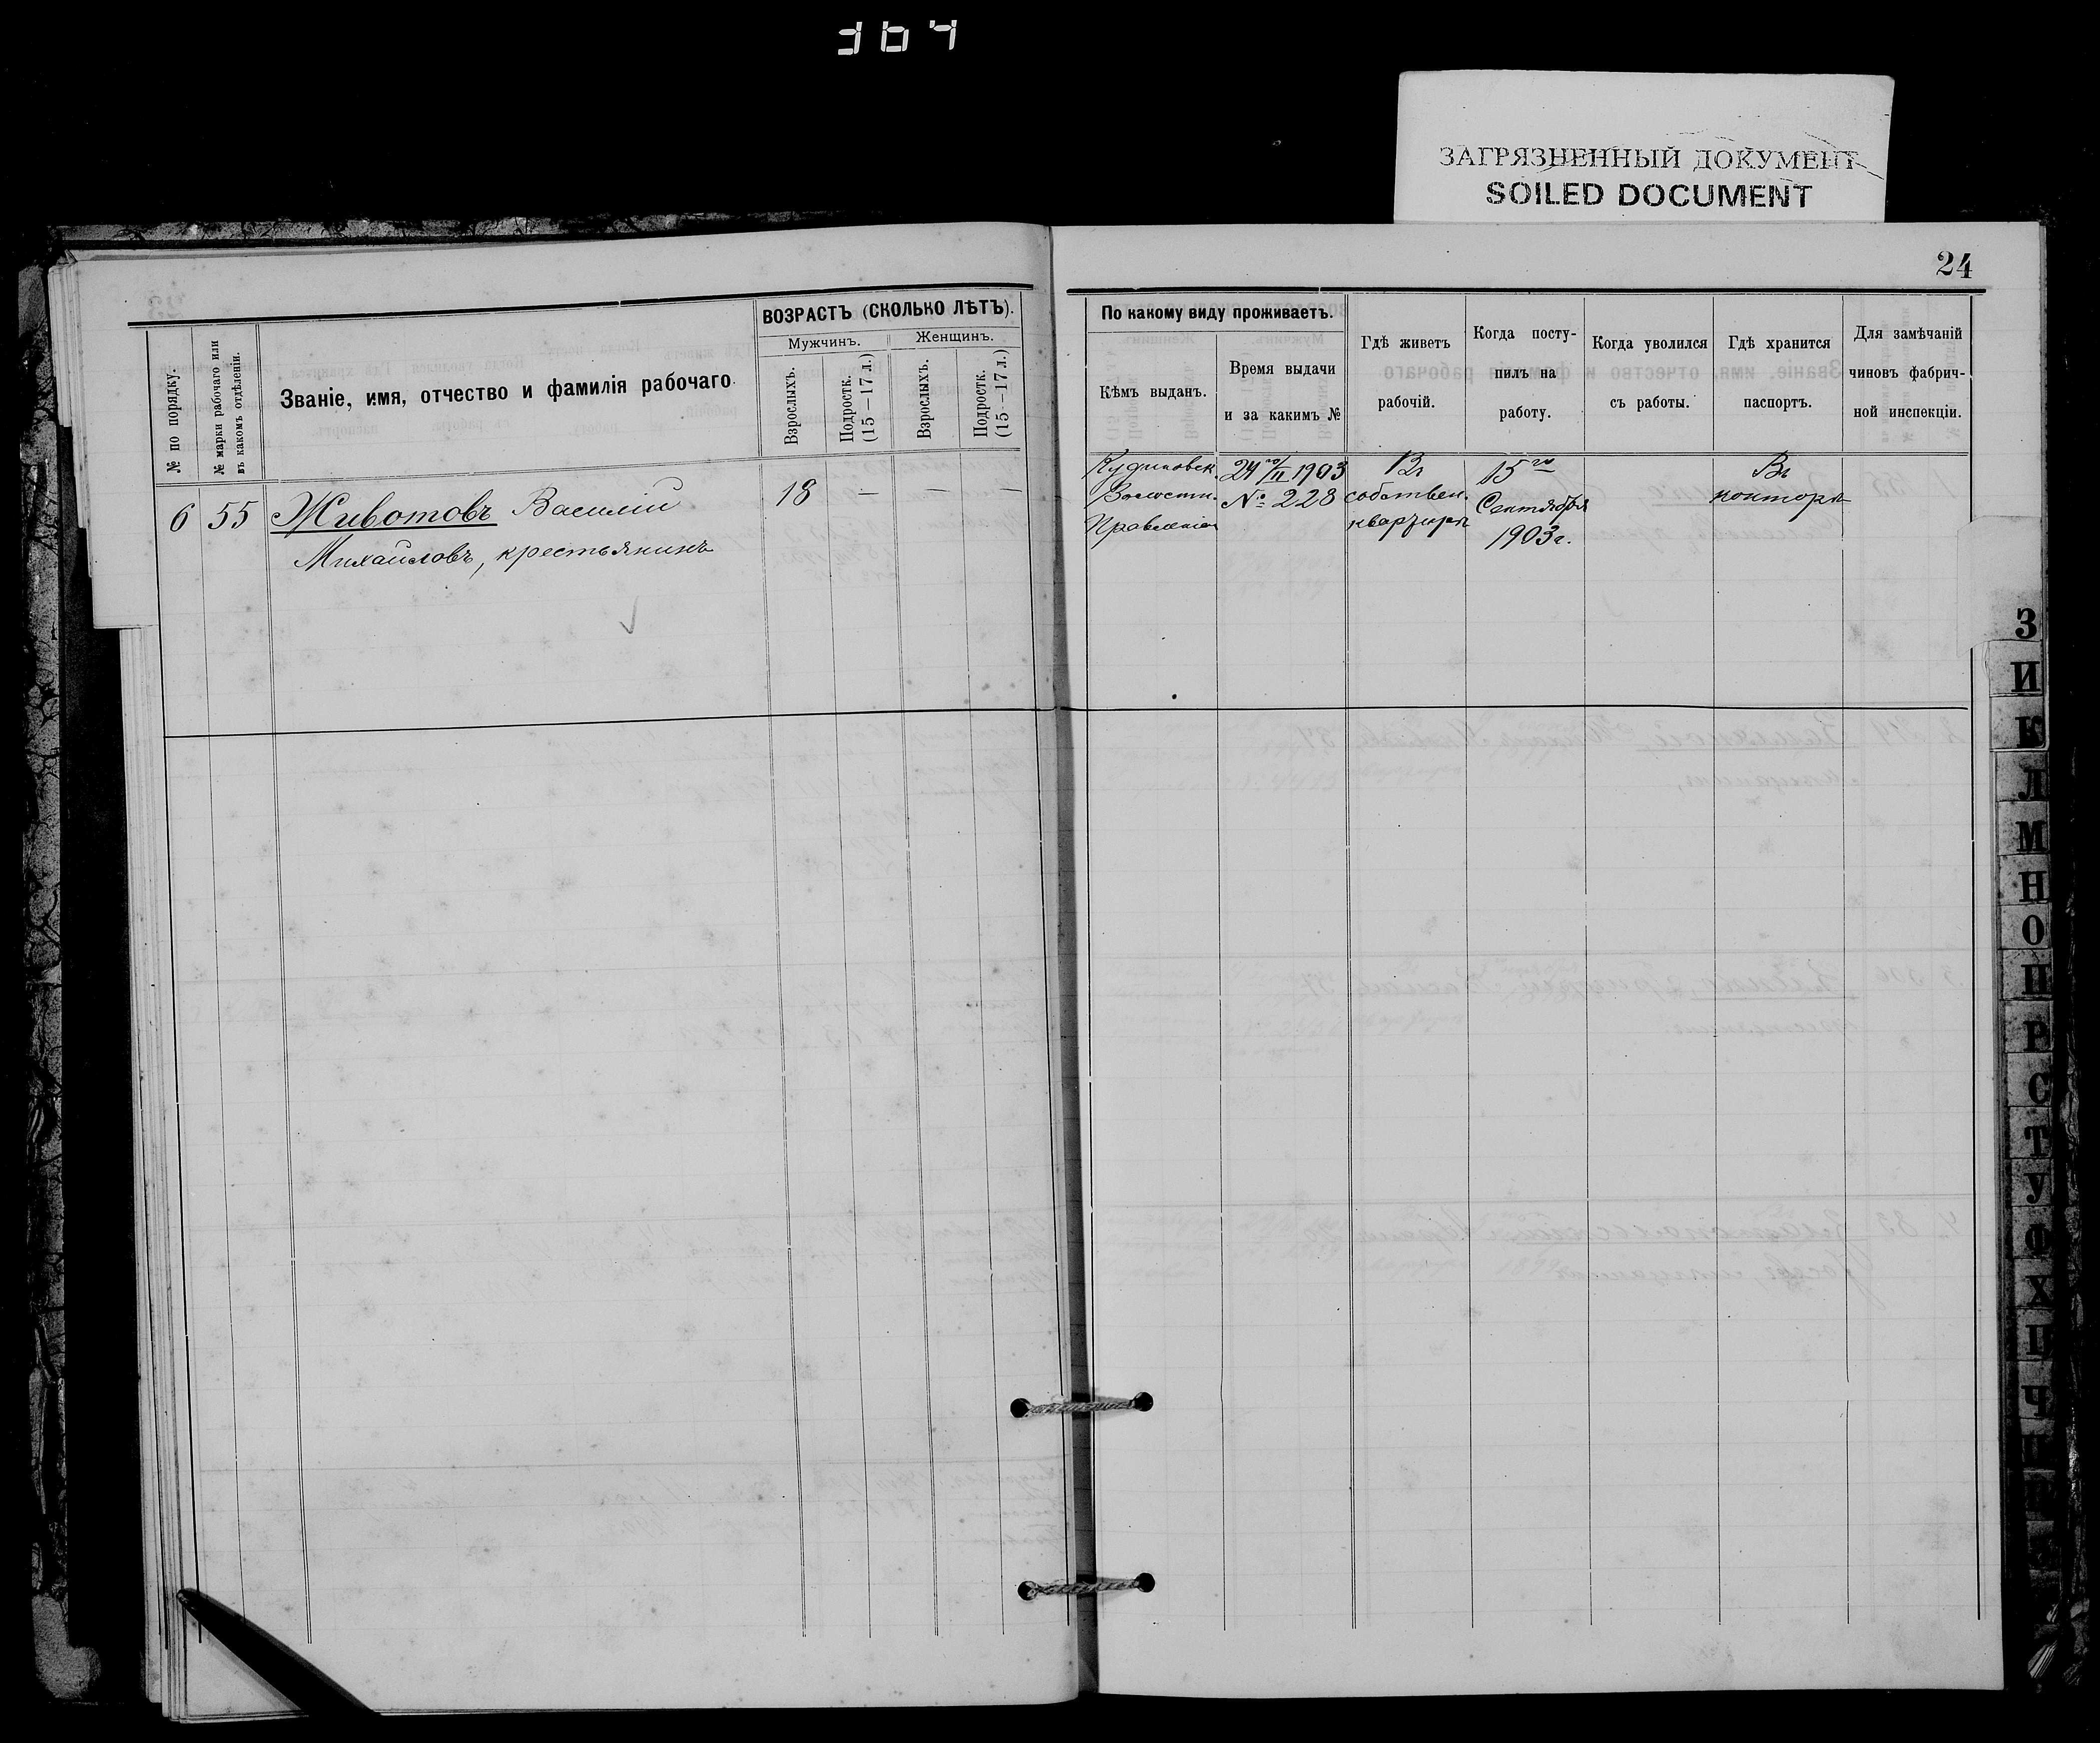 364
ЗАГРЯЗНЕННЫЙ ДОКУМЕНТ
SOILED DOCUMENT
24
№ по порядку.
№ марки рабочаго или
въ какомъ отдѣленіи.
Званіе, имя, отчество и фамилія рабочаго.
ВОЗРАСТЪ (СКОЛЬКО ЛѢТЪ).
Мужчинъ.
Женщинъ.
Взрослыхъ.
Подростк.
(15—17 л.)
Взрослыхъ.
Подростк.
(15—17 л.)
По какому виду проживаетъ.
Кѣмъ выданъ.
Время выдачи
и за какимъ №
Гдѣ живетъ
рабочій.
Когда посту-
пилъ на
работу.
Когда уволился
съ работы.
Гдѣ хранится
паспортъ.
Для замѣчаній
чиновъ фабрич-
ной инспекціи.
6 55 Животовъ Василій 18 — — —
Михайловъ, крестьянинъ
Волостн.
Правленіем
24 го/II 1903
№ 228
Въ
собствен.
квартирѣ
15 го
Сентября
1903 г.
Въ
конторѣ
З
И
К
Л
М
Н
О
П
Р
С
Т
У
Ф
Х
Ц
Ч